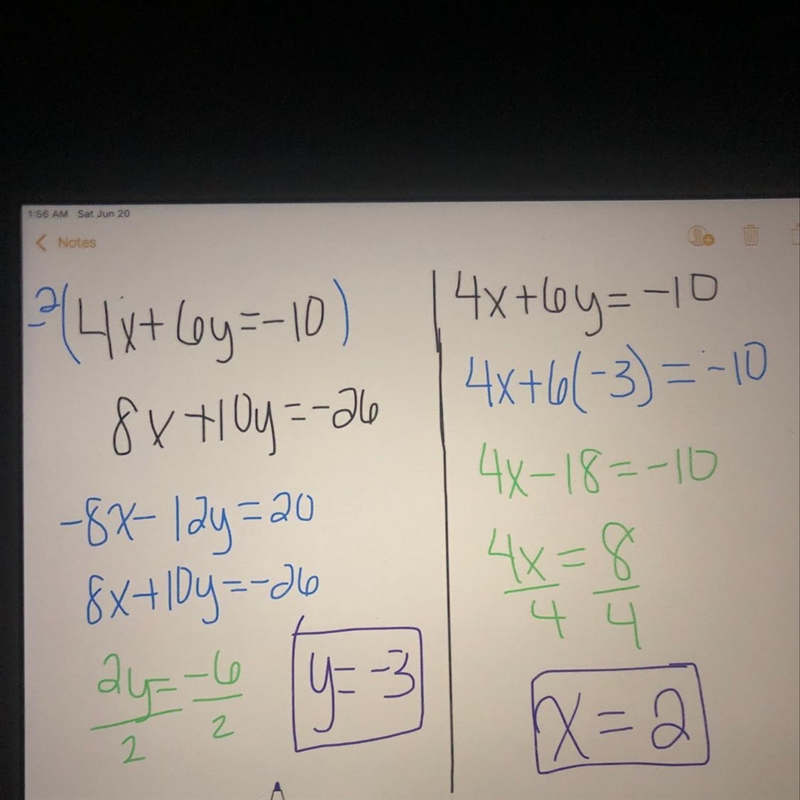 1:56 AM Sat Jun 20
Notes
-2(4x+6y=-10)
8x+10y=-26
-8x-12y=20
8x+10y=-26
2y=-6
2 2
y=-3
4x+6y=-10
4x+6(-3)=-10
4x-18=-10
4x=8
4 4
x=2